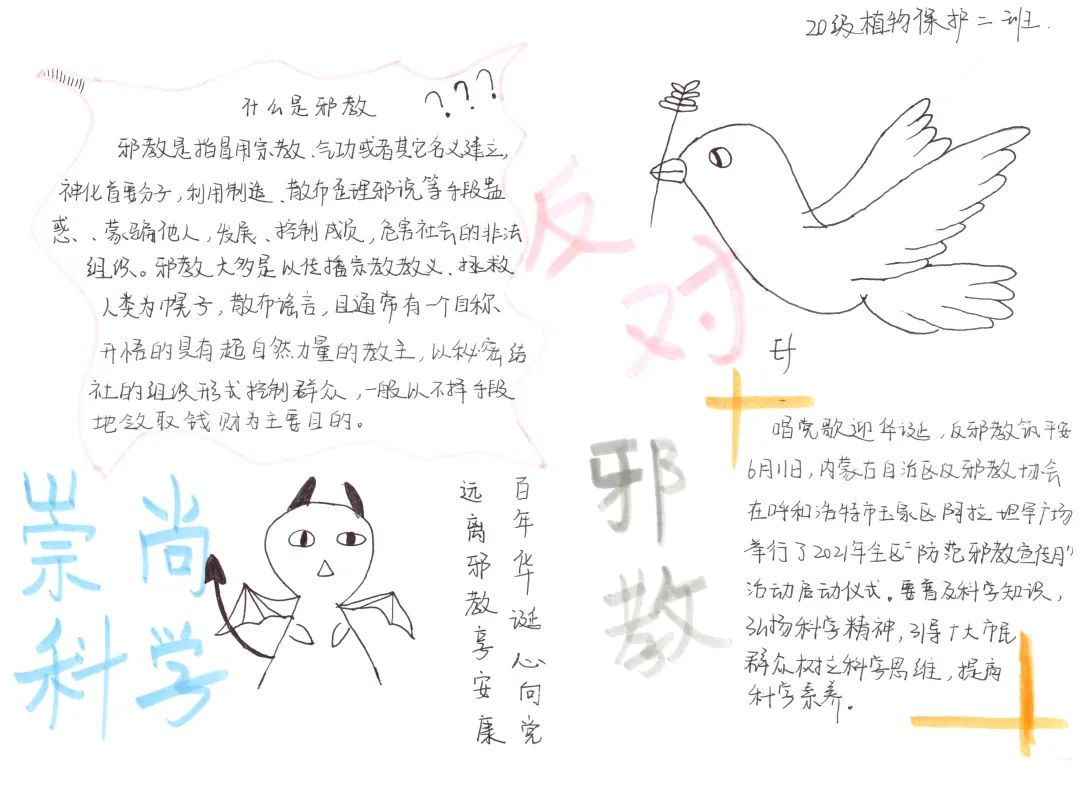 20级植物保护二班.
什么是邪教 ???
邪教是指冒用宗教、气功或者其它名义建立,
神化首要分子,利用制造、散布歪理邪说等手段蛊
惑、、蒙骗他人,发展、控制成员,危害社会的非法
组织。邪教大多是以传播宗教教义、拯救
人类为幌子,散布谣言,且通常有一个自称
开悟的具有超自然力量的教主,以秘密结
社的组织形式控制群众,一般以不择手段
地敛取钱财为主要目的。
反对
邪教
崇尚
科学
百年华诞心向党
远离邪教享安康
唱党歌迎华诞,反邪教筑平安
6月11日,内蒙古自治区反邪教协会
在呼和浩特市玉泉区阿拉坦罕广场
举行了2021年全区“防范邪教宣传月”
活动启动仪式。要普及科学知识,
弘扬科学精神,引导广大市民
群众树立科学思维,提高
科学素养。